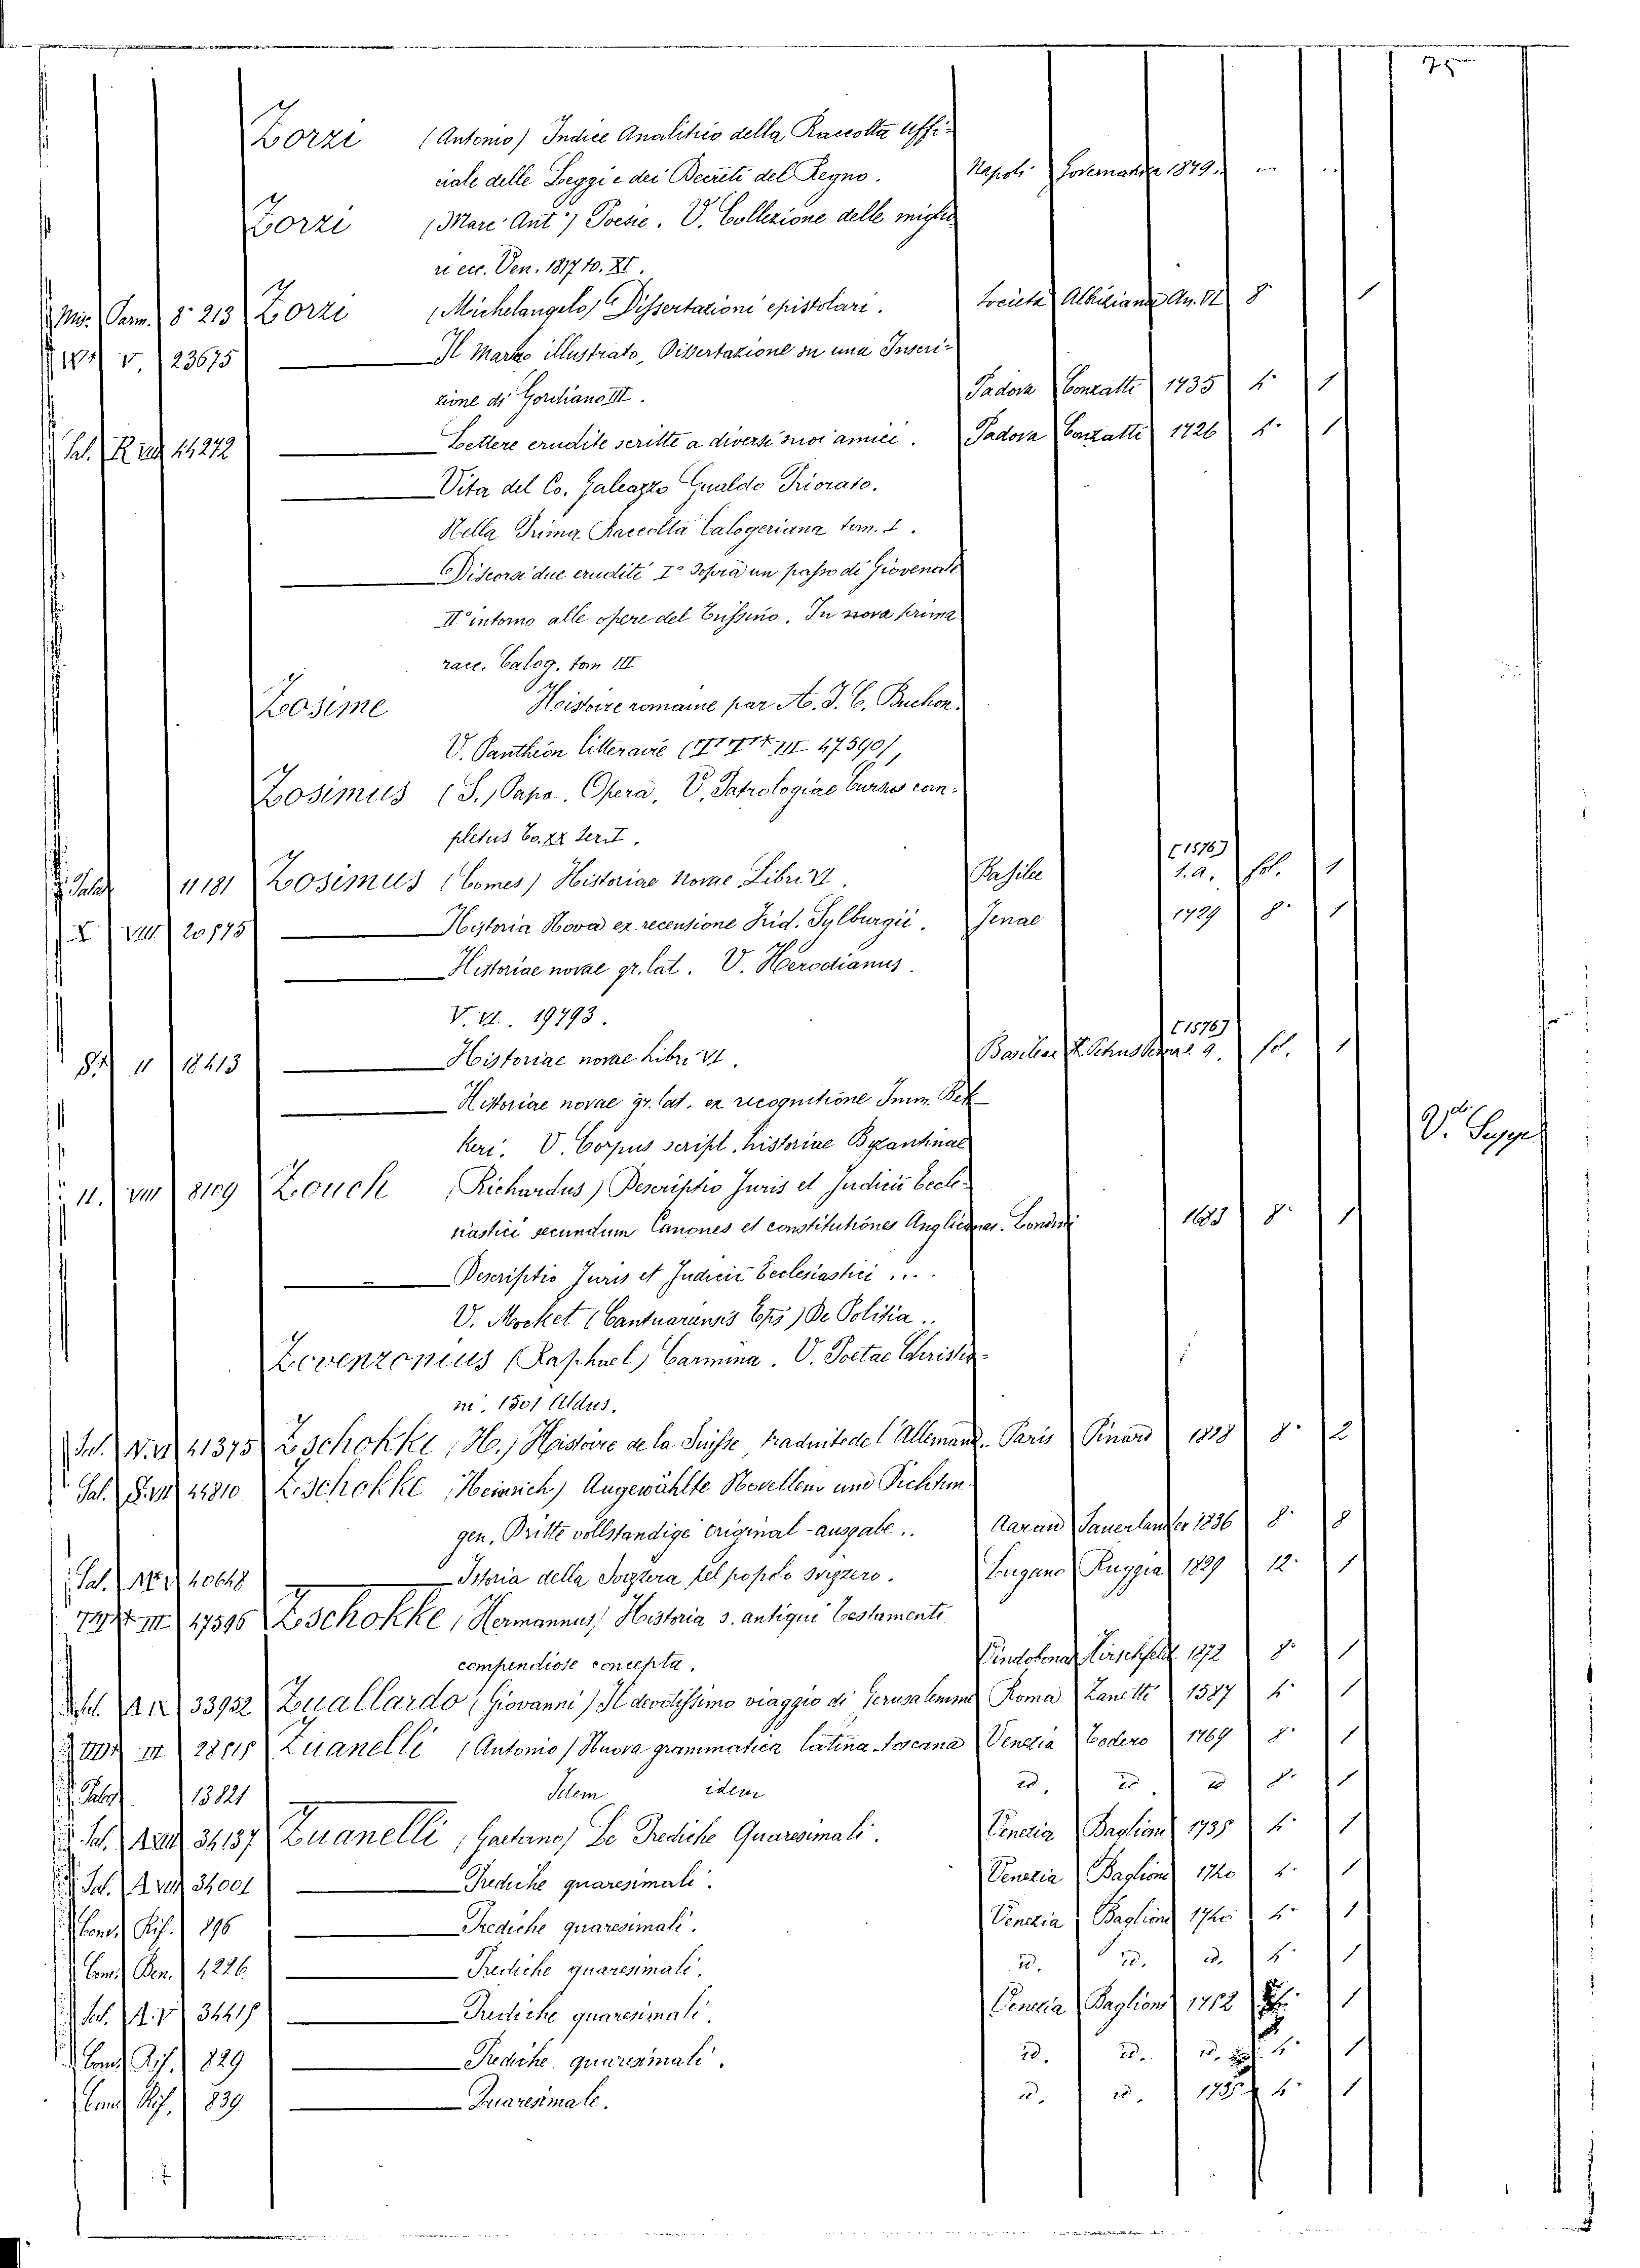 Zorzi (Antonio) Indice Analitico della Raccolta Uffi-
ciale delle Leggi e dei Decreti del Regno. Napoli Governativa 1879.
Zorzi (Marc' Ant°) Poesie. V. Collezione delle miglio
ri ecc. Ven. 1817 to. XI.
Mis. Parm. 8° 213 Zorzi (Michelangelo) Dissertazioni epistolari. Società Albiziana An. VI 8° 1
V. 23675 Il Marmo illustrato, Dissertazione su una Inscri-
zione di Gordiano III. Padova Conzatti 1735 4° 1
Sal. 44272 Lettere erudite scritte a diversi suoi amici. Padova Conzatti 1726 4° 1
Vita del Co. Galeazzo Gualdo Priorato.
Nella Prima Raccolta Calogeriana tom. I.
Discorsi due eruditi I° sopra un passo di Giovenale
II° intorno alle opere del Trissino. In nova prima
racc. Calog. tom III
Zosime Histoire romaine par A. J. C. Buchon.
V. Panthéon litteraire ( III 47590),
Zosimus (S.) Papa. Opera, V. Patrologiae Cursus com-
pletus To. XX Ser. I.
11181 Zosimus (Comes) Historiae novae Libri VI. Basilee [1576] s.a. fol. 1
X VIII 20875 Historia Nova ex recensione Frid. Sylburgii. Jenae 1729 8° 1
Historiae novae gr. lat. V. Herodianus.
V. VI. 19793.
11 18413 Historiae novae Libri VI. Basileae [1576] fol. 1
Historiae novae gr. lat. ex recognitione Imm. Bek
keri. V. Corpus script. historiae Byzantinae V. Suppl
11. VIII 8109 Zouch (Richardus) Descriptio Juris et Judicii Eccle-
siastici secundum Canones et constitutiones Anglicanas. Londini 1683 8° 1
Descriptio Juris et Judicii Ecclesiastici ....
V. Mocket (Cantuariensis Eps) De Politia ..
Zovenzonius (Raphael) Carmina. V. Poetae Christia-
ni. 1501 Aldus.
Sal. N. VI 41375 Zschokke, (H.) Histoire de la Suisse, traduite de l'Allemand. Paris Pinard 1828 8° 2
Sal. S. VII 44810 Zschokke (Heinrich) Augewählte Novellens und Dichtun-
gen, Dritte vollständige original-ausgabe .. Aarau Sauerlander 1836 8° 8
Sal. 40648 Istoria della Svizzera pel popolo svizzero. Lugano Ruggia 1829 12° 1
III 47596 Zschokke (Hermannus) Historia s. antiqui Testamenti
compendiose concepta. Vindobonae Kirschfeld 1872 8° 1
Sal. A IX 33932 Zuallardo (Giovanni) Il devotissimo viaggio di Gerusalemme Roma Zanetti 1587 4° 1
III 28515 Zuanelli (Antonio) Nuova grammatica latina-toscana Venezia Todero 1769 8° 1
Palat. 13821 Idem idem id. id. id 8° 1
Sal. 34137 Zuanelli (Gaetano) Le Prediche Quaresimali. Venezia Baglioni 1735 4° 1
Sal. A VII 34001 Prediche quaresimali. Venezia Baglioni 1740 4° 1
Conv. Rif. 896 Prediche quaresimali. Venezia Baglioni 4° 1
Conv. Ben. 4226 Prediche quaresimali. id. id. id. 4° 1
Sal. A. V 34415 Prediche quaresimali. Venezia Baglioni 1752 1
Conv. Rif. 829 Prediche quaresimali. id. id. id. 4° 1
Conv. Rif. 839 Quaresimale. id. id. 4° 1